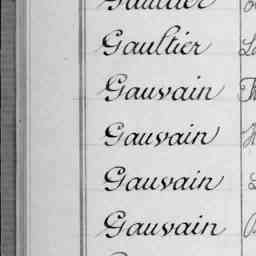 Gaultier
Gaultier
Gauvain
Gauvain
Gauvain
Gauvain